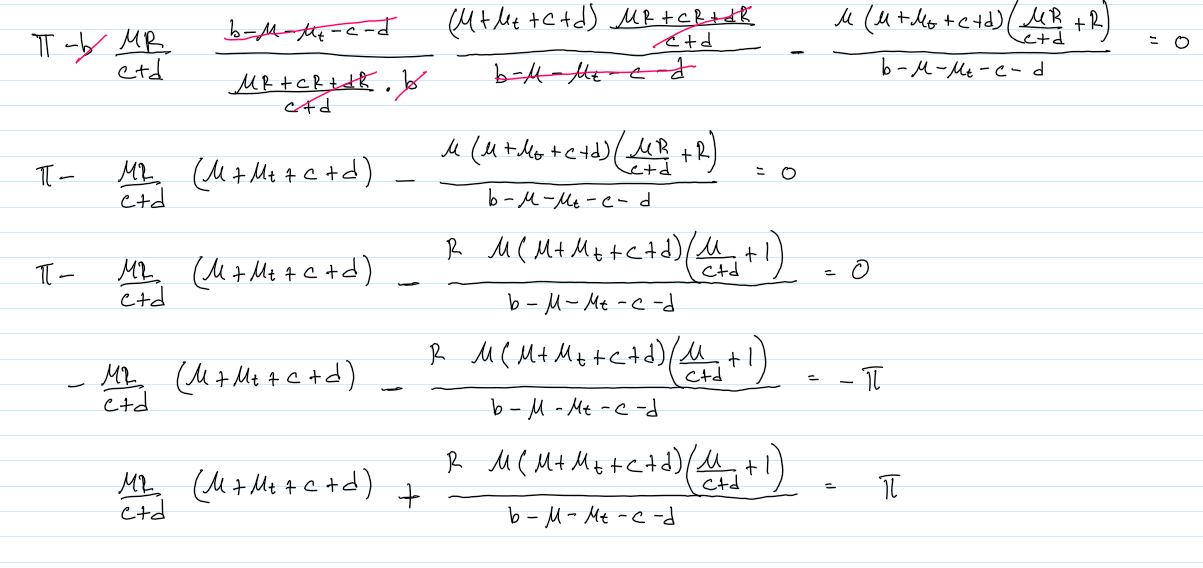 π - b μR/(c+d) (b-μ-μ_t-c-d)/((μR+cR+dR)/(c+d) · b) ((μ+μ_t+c+d) (μR+cR+dR)/(c+d))/(b-μ-μ_t-c-d) - (μ(μ+μ_t+c+d)(μR/(c+d) + R))/(b-μ-μ_t-c-d) = 0
π - μR/(c+d) (μ+μ_t+c+d) - (μ(μ+μ_t+c+d)(μR/(c+d) + R))/(b-μ-μ_t-c-d) = 0
π - μR/(c+d) (μ+μ_t+c+d) - (R μ(μ+μ_t+c+d)(μ/(c+d) + 1))/(b-μ-μ_t-c-d) = 0
- μR/(c+d) (μ+μ_t+c+d) - (R μ(μ+μ_t+c+d)(μ/(c+d) + 1))/(b-μ-μ_t-c-d) = -π
μR/(c+d) (μ+μ_t+c+d) + (R μ(μ+μ_t+c+d)(μ/(c+d) + 1))/(b-μ-μ_t-c-d) = π